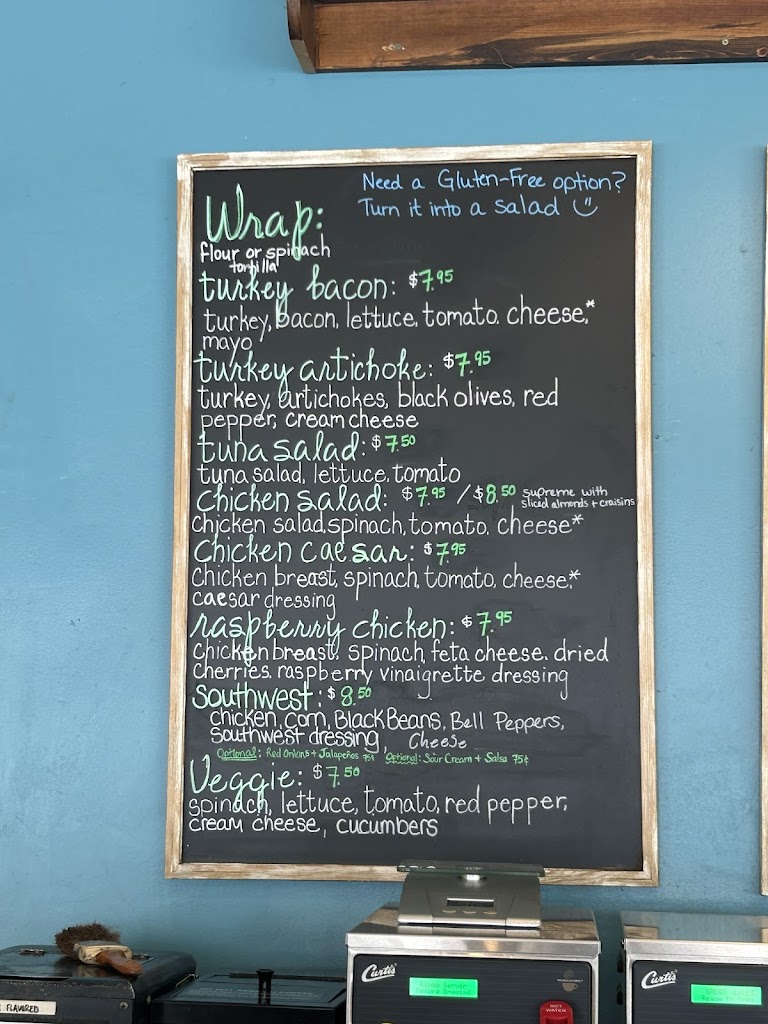 Need a Gluten-Free option?
Turn it into a salad
Wrap:
flour or spinach
tortilla
turkey bacon: $7.95
turkey, bacon, lettuce, tomato, cheese,*
mayo
turkey artichoke: $7.95
turkey, artichokes, black olives, red
pepper, cream cheese
tuna salad: $7.50
tuna salad, lettuce, tomato
chicken salad: $7.95 / $8.50 supreme with
sliced almonds + craisins
chicken salad, spinach, tomato, cheese*
chicken caesar: $7.95
chicken breast, spinach, tomato, cheese,*
caesar dressing
raspberry chicken: $7.95
chicken breast, spinach, feta cheese, dried
cherries, raspberry vinaigrette dressing
Southwest: $8.50
chicken, corn, Black Beans, Bell Peppers,
southwest dressing, Cheese
Optional: Red Onions + Jalapeños 75¢ Optional: Sour Cream + Salsa 75¢
Veggie: $7.50
spinach, lettuce, tomato, red pepper,
cream cheese, cucumbers
Curtis
HOT
WATER
Curtis
FLAVORED